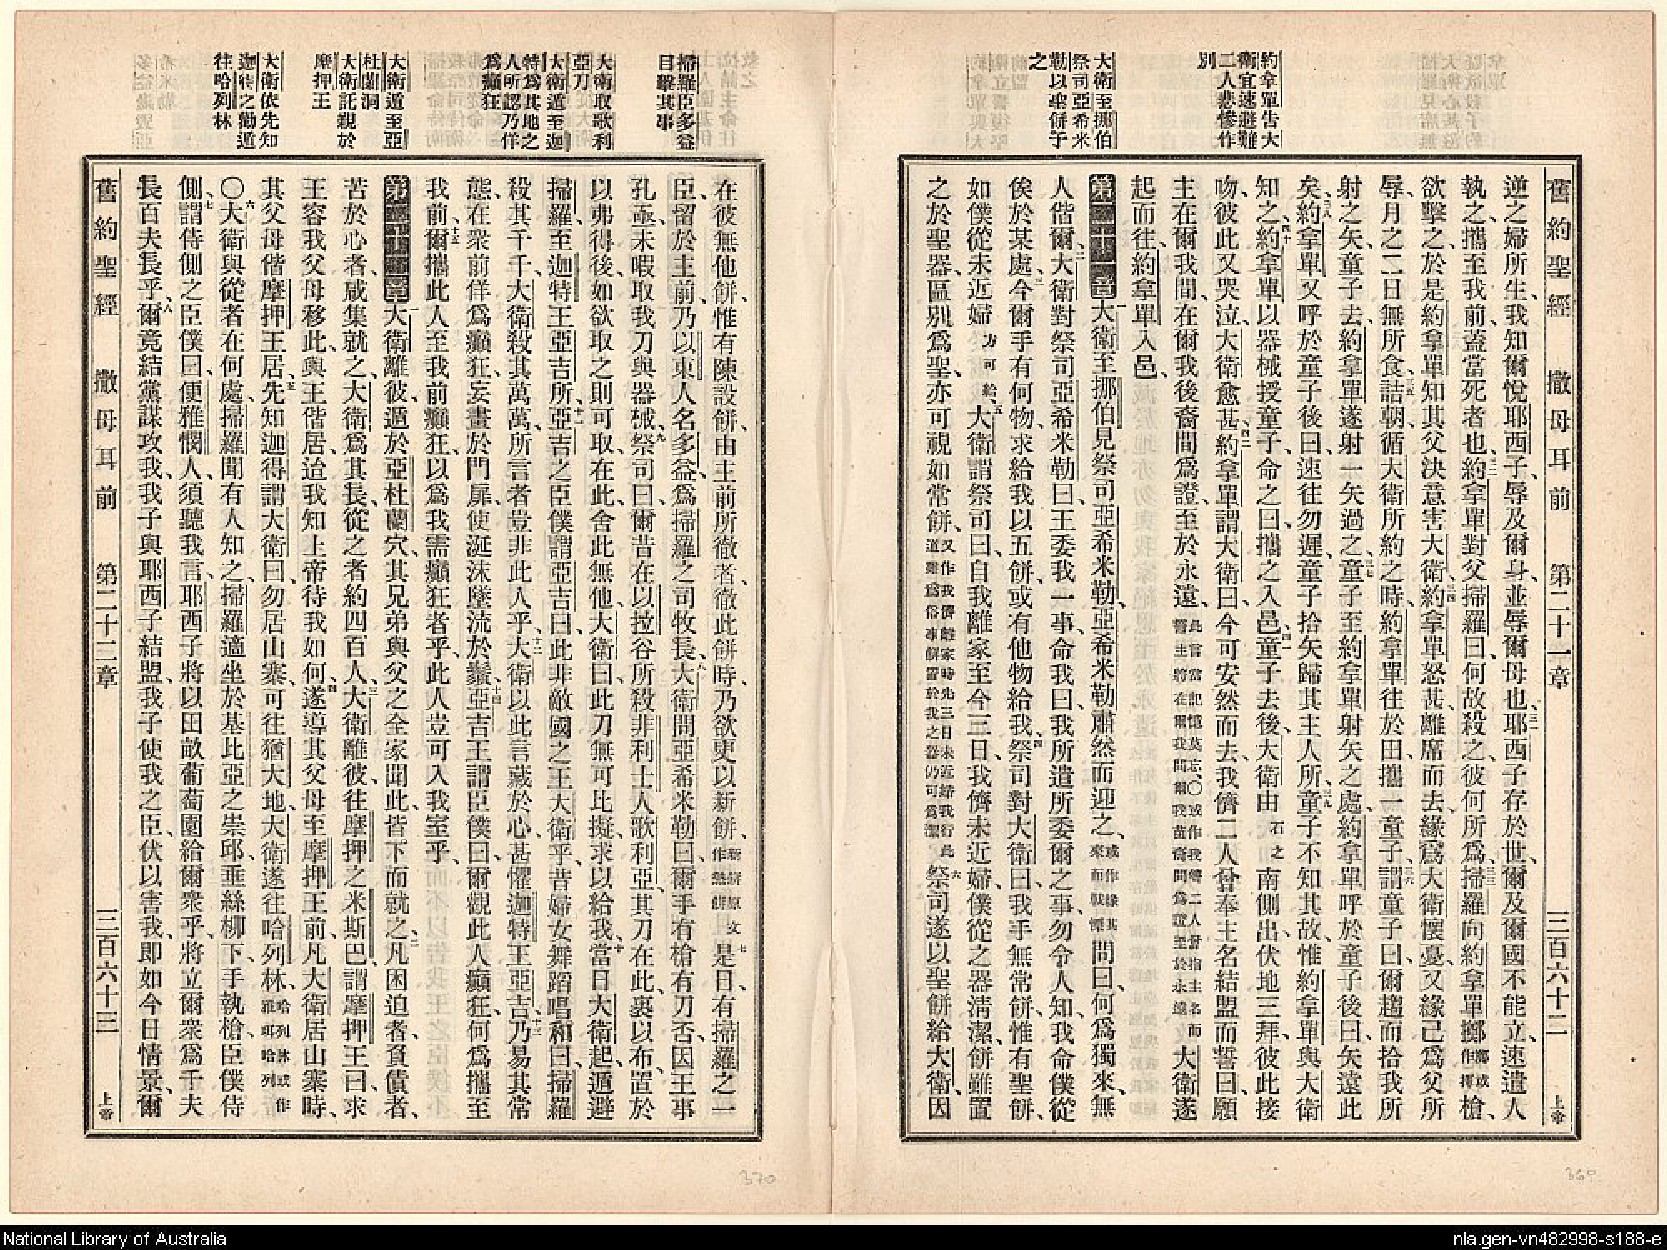 舊約聖經　撒母耳前　第二十一章　三百六十二　上帝
約拿單告大
衛宜速避難
二人悲慘作
別
大衛至挪伯
祭司亞希米
勒以聖餅予
之
逆之婦所生、我知爾悅耶西子、辱及爾身、並辱爾母也、耶西子存於世、爾及爾國不能立、速遣人
執之、攜至我前、蓋當死者也、約拿單對父掃羅曰、何故殺之、彼何所爲、掃羅向約拿單擲擲或作揮槍、
欲擊之、於是約拿單知其父決意害大衛、約拿單怒甚、離席而去、緣爲大衛懷憂、又緣己爲父所
辱、月之二日無所食、詰朝、循大衛所約之時、約拿單往於田、攜一童子、謂童子曰、爾趨而拾我所
射之矢、童子去、約拿單遂射一矢過之、童子至約拿單射矢之處、約拿單呼於童子後曰、矢遠此
矣、約拿單又呼於童子後曰、速往勿遲、童子拾矢歸其主人所、童子不知其故、惟約拿單與大衛
知之、約拿單以器械授童子、命之曰、攜之入邑、童子去後、大衛由石之南側出、伏地三拜、彼此接
吻、彼此又哭泣、大衛愈甚、約拿單謂大衛曰、今可安然而去、我儕二人曾奉主名結盟而誓曰、願
主在爾我間、在爾我後裔間爲證、至於永遠、此言當記憶莫忘〇或作我儕二人曾指主名而誓主將在爾我間爾我苗裔間爲證至於永遠大衛遂
起而往、約拿單入邑、
第二十一章 大衛至挪伯、見祭司亞希米勒、亞希米勒肅然而迎之、或作緣其來而戰慄問曰、何爲獨來、無
人偕爾、大衛對祭司亞希米勒曰、王委我一事、命我曰、我所遣所委爾之事、勿令人知、我命僕從
俟於某處、今爾手有何物、求給我以五餅、或有他物給我、祭司對大衛曰、我手無常餅、惟有聖餅、
如僕從未近婦、方可給、大衛謂祭司曰、自我離家至今三日、我儕未近婦、僕從之器清潔、餅雖置
之於聖器、區別爲聖、亦可視如常餅、又作我儕離家時先三日未近婦我行此道雖爲俗事餅置於我之器仍可爲潔祭司遂以聖餅給大衛、因
掃羅臣多益
目擊其事
大衛取歌利
亞刀
大衛逃至迦
特爲其地之
人所認乃佯
爲癲狂
大衛逃至亞
杜蘭洞
大衛託親於
摩押王
大衛依先知
迦得之勸逃
往哈列林
在彼無他餅、惟有陳設餅、由主前所徹者、徹此餅時、乃欲更以新餅、新餅原文作熱餅是日、有掃羅之一
臣、留於主前、乃以東人名多益、爲掃羅之司牧長、大衛問亞希米勒曰、爾手有槍有刀否、因王事
孔亟、未暇取我刀與器械、祭司曰、爾昔在以拉谷所殺非利士人歌利亞、其刀在此、裹以布、置於
以弗得後、如欲取之則可取、在此舍此無他、大衛曰、此刀無可比擬、求以給我、當日大衛起、遁避
掃羅、至迦特王亞吉所、亞吉之臣僕謂亞吉曰、此非敵國之王大衛乎、昔婦女舞蹈唱和曰、掃羅
殺其千千、大衛殺其萬萬、所言者、豈非此人乎、大衛以此言藏於心、甚懼迦特王亞吉、乃易其常
態、在衆前佯爲癲狂、妄畫於門扉、使涎沫墜流於鬚、亞吉王謂臣僕曰、爾觀此人癲狂、何爲攜至
我前、爾攜此人至我前癲狂、以爲我需癲狂者乎、此人豈可入我室乎、
第二十二章 大衛離彼、遁於亞杜蘭穴、其兄弟與父之全家聞此、皆下而就之、凡困迫者、負債者、
苦於心者、咸集就之、大衛爲其長、從之者約四百人、大衛離彼、往摩押之米斯巴、謂摩押王曰、求
王容我父母移此、與王偕居、迨我知上帝待我如何、遂導其父母至摩押王前、凡大衛居山寨時、
其父母偕摩押王居、先知迦得謂大衛曰、勿居山寨、可往猶大地、大衛遂往哈列林、哈列林或作雅珥哈列
〇大衛與從者在何處、掃羅聞有人知之、掃羅適坐於基比亞之崇邱、垂絲柳下、手執槍、臣僕侍
側、謂侍側之臣僕曰、便雅憫人、須聽我言、耶西子將以田畝葡萄園給爾衆乎、將立爾衆爲千夫
長百夫長乎、爾竟結黨謀攻我、我子與耶西子結盟、我子使我之臣伏以害我、卽如今日情景、爾
舊約聖經　撒母耳前　第二十二章　三百六十三　上帝
370
369
National Library of Australia
nla.gen-vn482998-s188-e